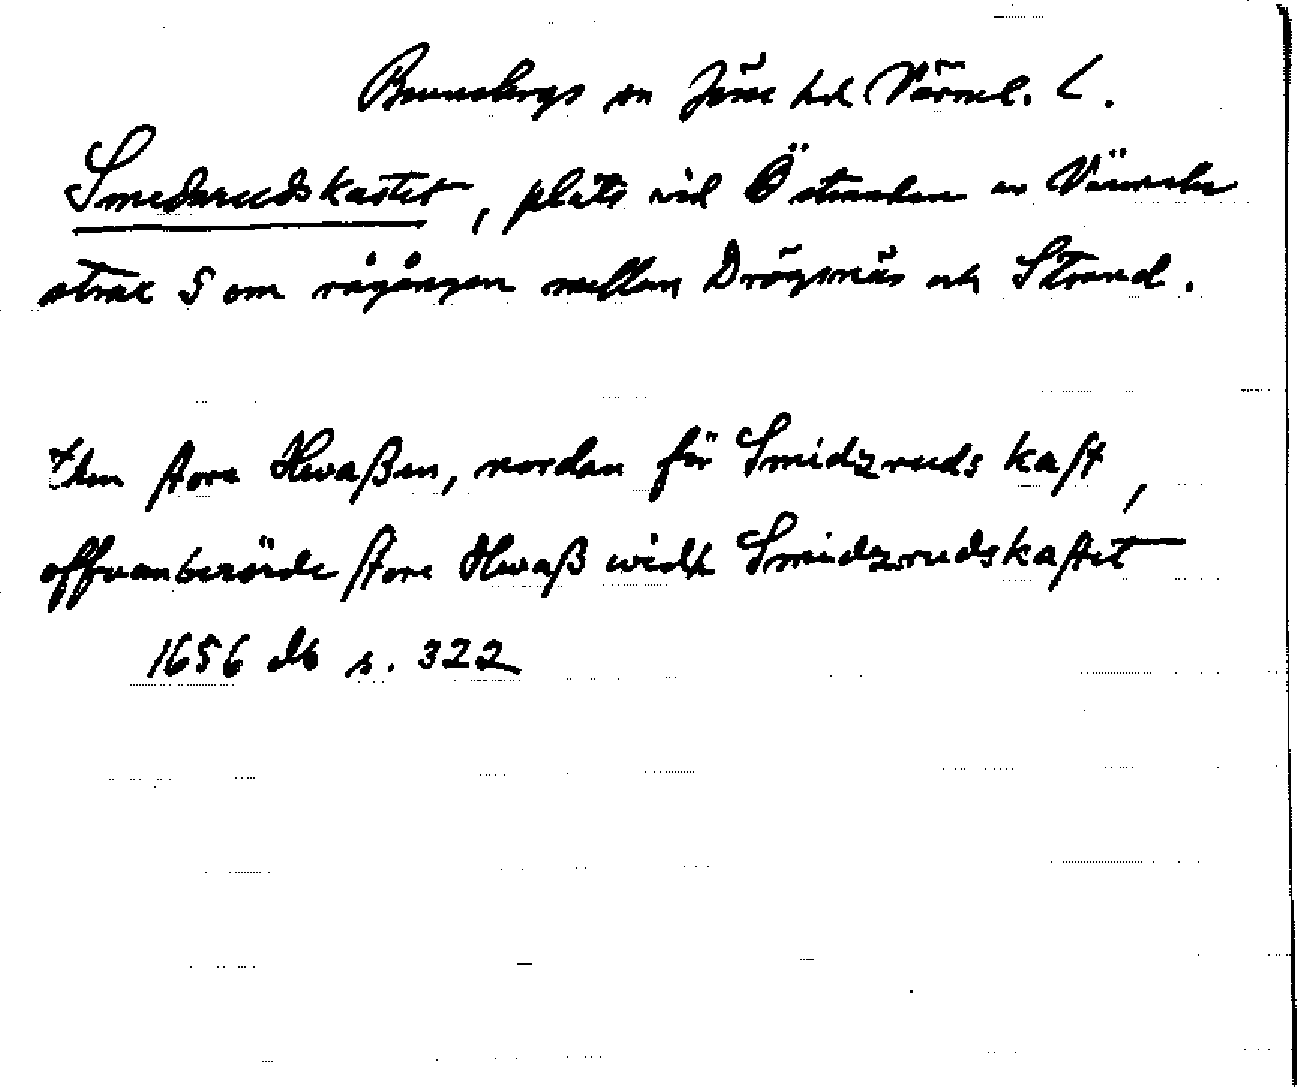 Brunsbergs sn Jösse hd. Värml. L.
Smedsrudskastet, plats vid Östranden av Värmeln
strax S om rågången mellan Drögsnäs och Strand.
store Hwaßen, nordan för Smidzruds kast,
offvanberörde store Hwaß widh Smidzrudskastet
1656 db s. 322